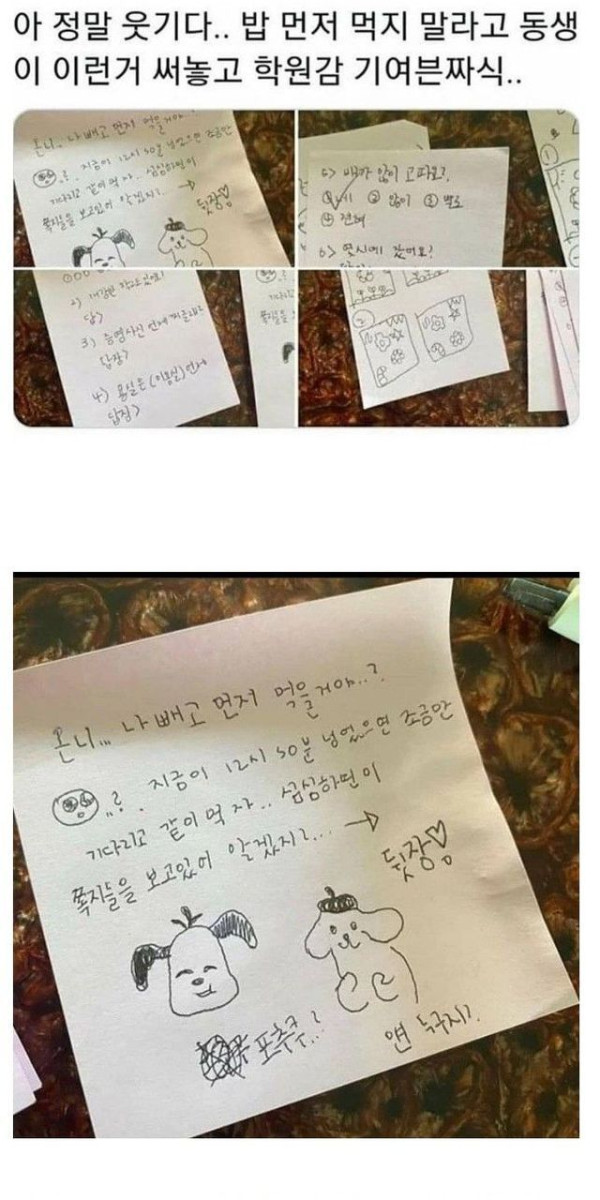 아 정말 웃기다.. 밥 먼저 먹지 말라고 동생
이 이런거 써놓고 학원감 기여븐짜식..
온니... 나 빼고 먼저 먹을거야..?
..? 지금이 12시 50분 넘었으면 조금만
기다리고 같이 먹자.. 심심하면 이
쪽지들을 보고있어 알겠지?... →
뒷장♡
5> 배가 많이 고파요?
① 네 ② 많이 ③ 별로
④ 전혀
6> 몇시에 갔어요?
답>
3)
답장>
4)
답장>
①
②
온니... 나 빼고 먼저 먹을거야..?
..? 지금이 12시 50분 넘었으면 조금만
기다리고 같이 먹자.. 심심하면 이
쪽지들을 보고있어 알겠지?... →
뒷장♡
포챠코..?
얜 누구지?